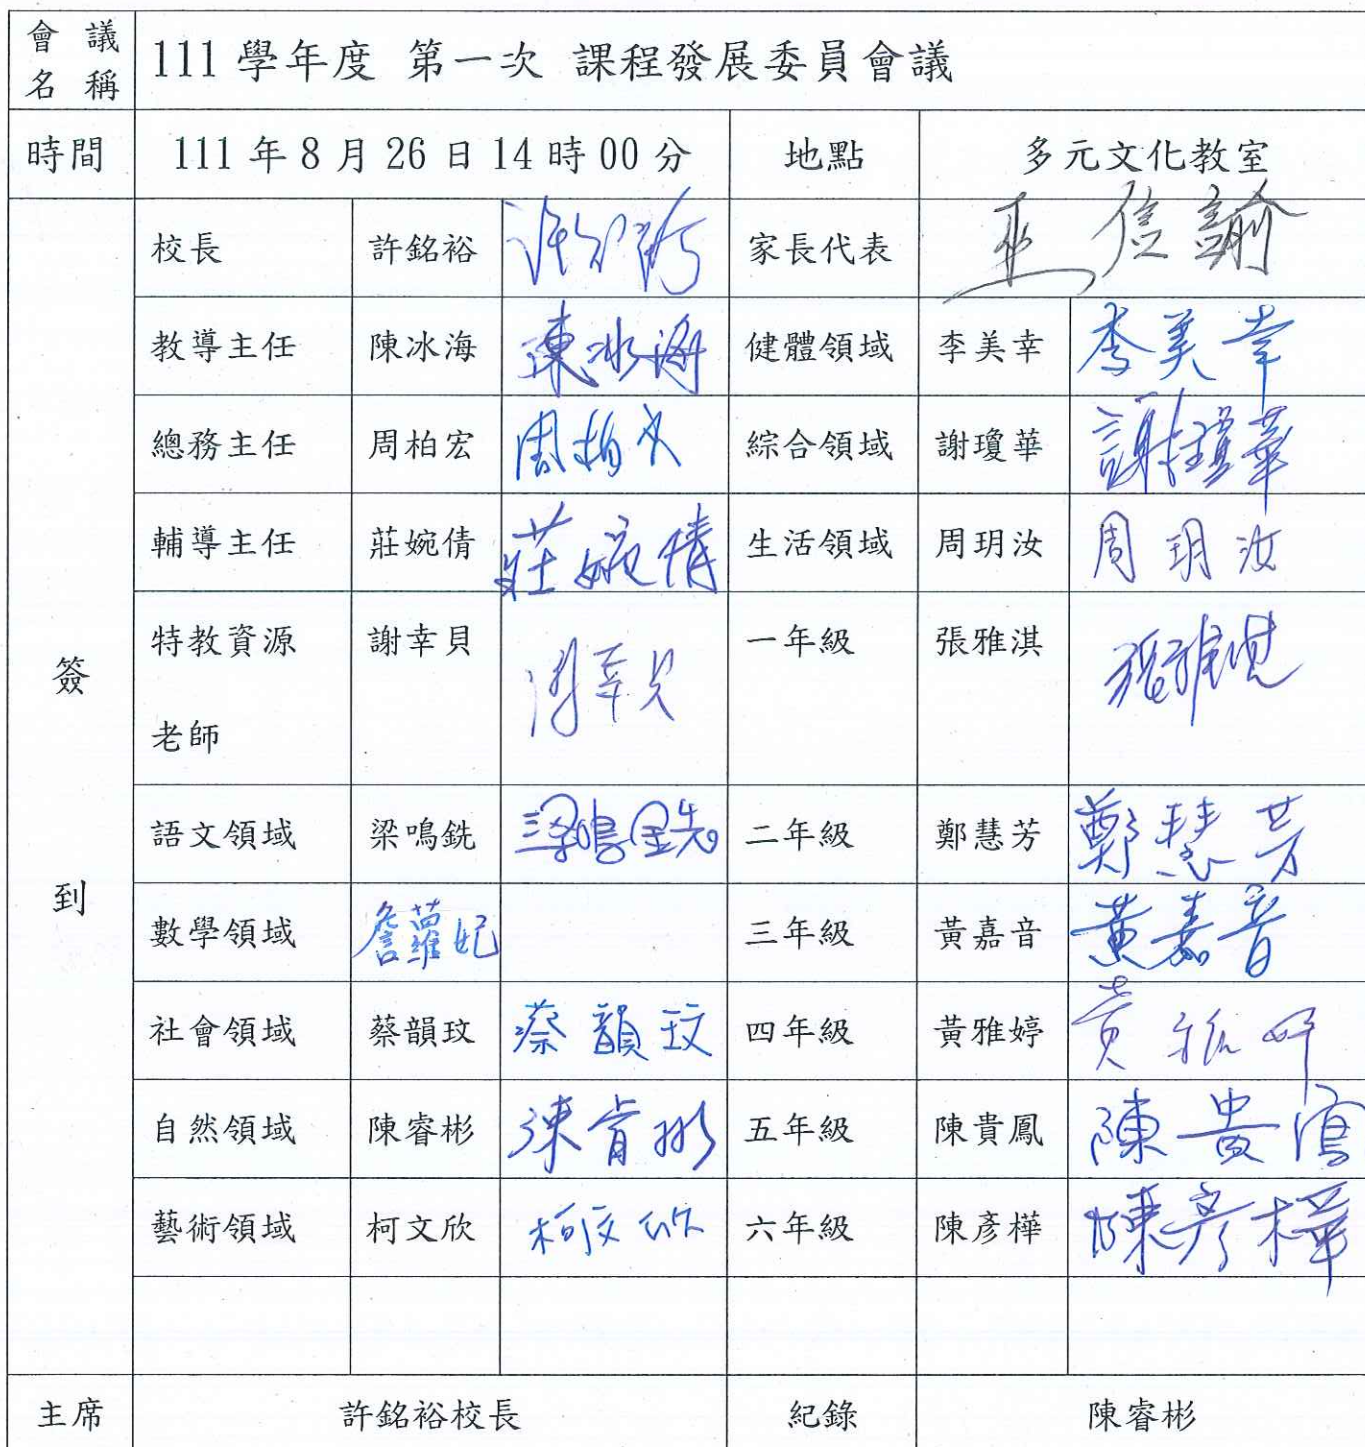 會議名稱 111 學年度 第一次 課程發展委員會議
時間 111 年 8 月 26 日 14 時 00 分 地點 多元文化教室
簽到
校長 許銘裕 家長代表 巫信諭
教導主任 陳冰海 陳冰海 健體領域 李美幸 李美幸
總務主任 周柏宏 周柏宏 綜合領域 謝瓊華 謝瓊華
輔導主任 莊婉倩 莊婉倩 生活領域 周玥汝 周玥汝
特教資源老師 謝幸貝 謝幸貝 一年級 張雅淇 張雅淇
語文領域 梁鳴銑 梁鳴銑 二年級 鄭慧芳 鄭慧芳
數學領域 詹蘿妃 三年級 黃嘉音 黃嘉音
社會領域 蔡韻玟 蔡韻玟 四年級 黃雅婷 黃雅婷
自然領域 陳睿彬 陳睿彬 五年級 陳貴鳳 陳貴鳳
藝術領域 柯文欣 柯文欣 六年級 陳彥樺 陳彥樺
主席 許銘裕校長 紀錄 陳睿彬